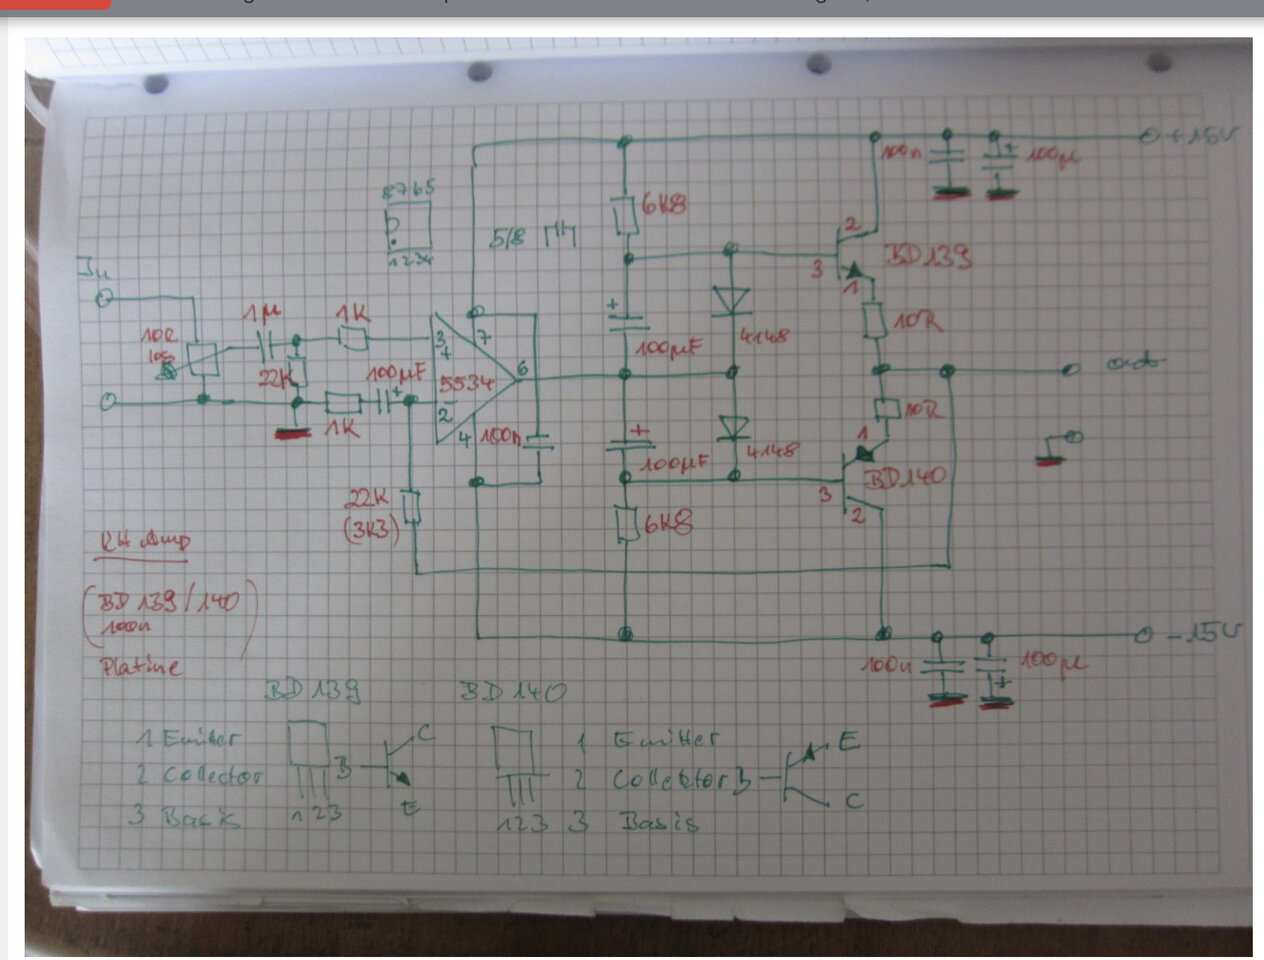 +15V
100n
100µ
8765
1234
6K8
5/8
2
BD139
3
1
In
1µ
1K
10R
100µF
4148
22K
100µF
3
+
7
5534
6
out
2
-
4
100n
1K
+
10R
1
100µF
4148
BD140
3
2
22K
(3K3)
6K8
RH Amp
(BD139/140
100n)
Platine
-15V
100n
100µ
+
BD139
BD140
1 Emiter
C
1 Emitter
E
2 Collector
B
2 Collektor B
3 Basis
123
E
123
3 Basis
C